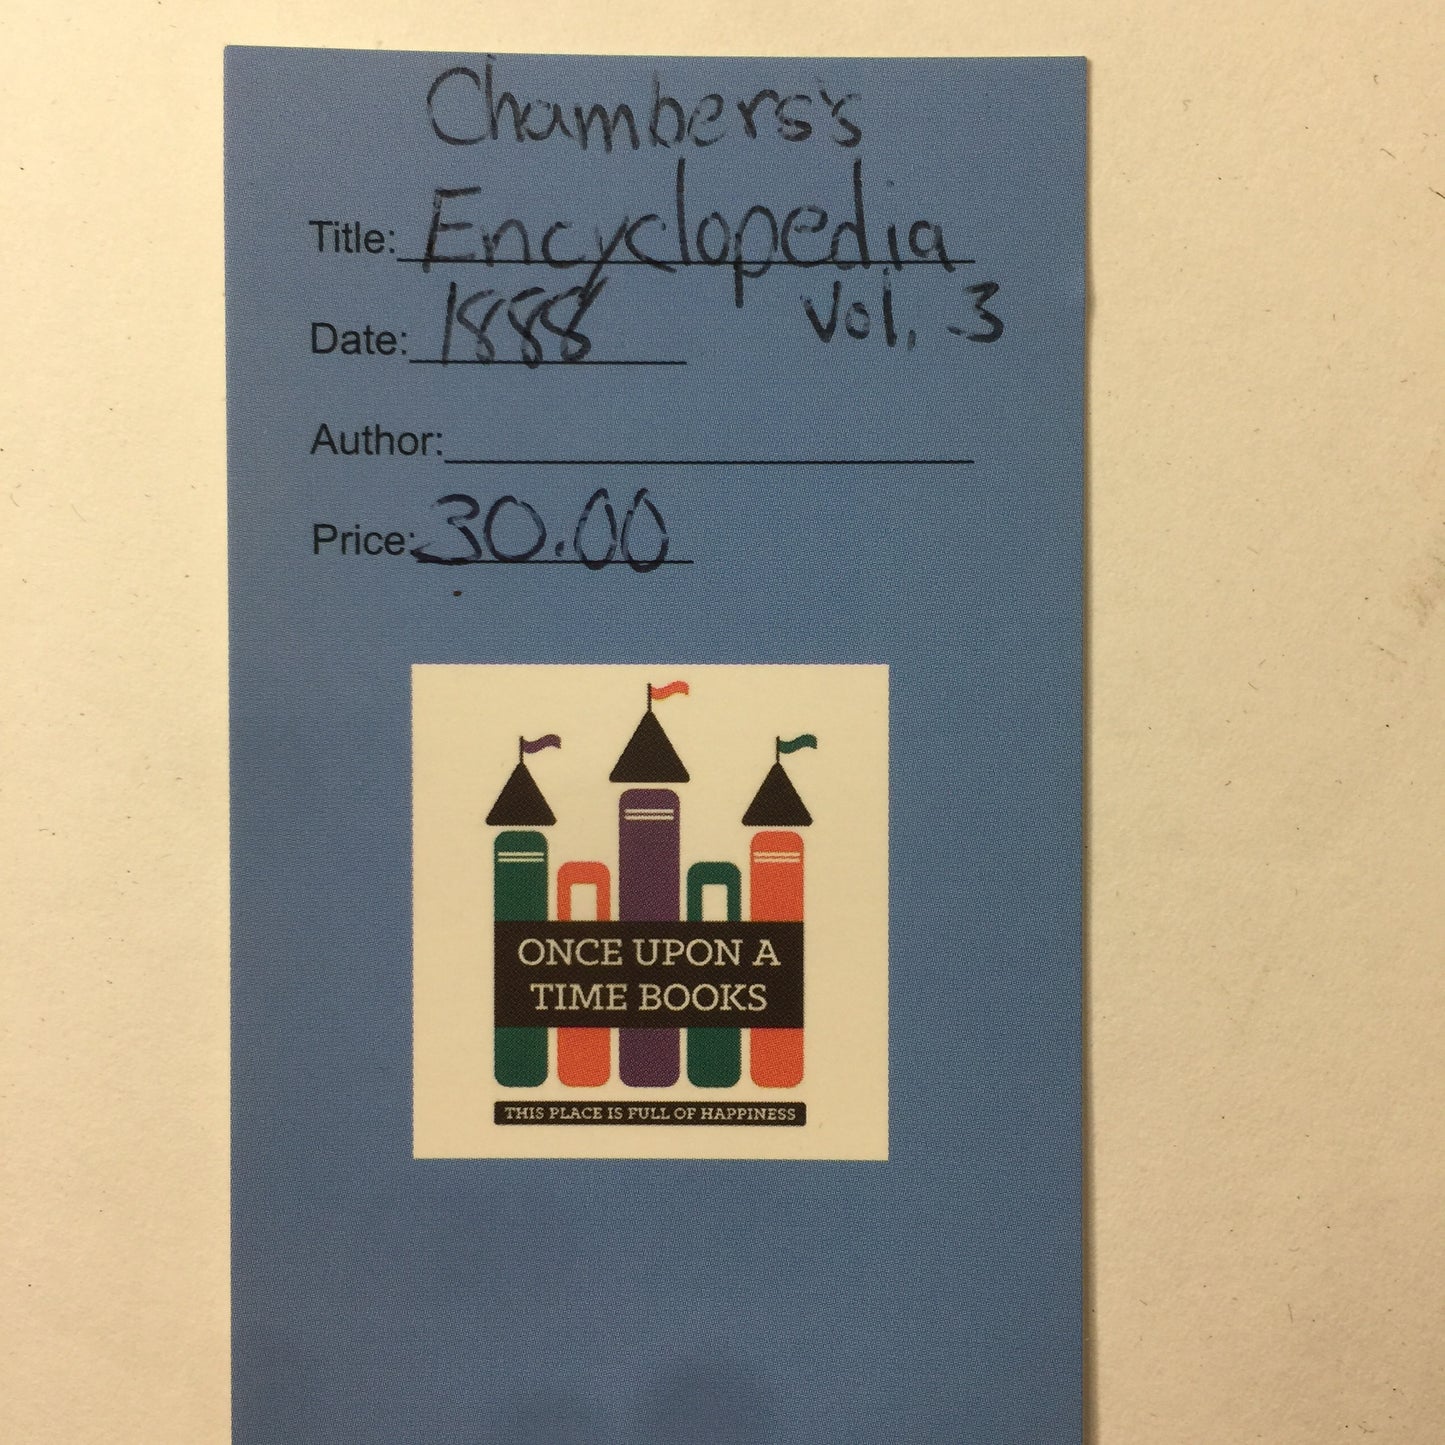 Chambers's
Title: Encyclopedia
Date: 1888 Vol. 3
Author:
Price: 30.00
ONCE UPON A
TIME BOOKS
THIS PLACE IS FULL OF HAPPINESS